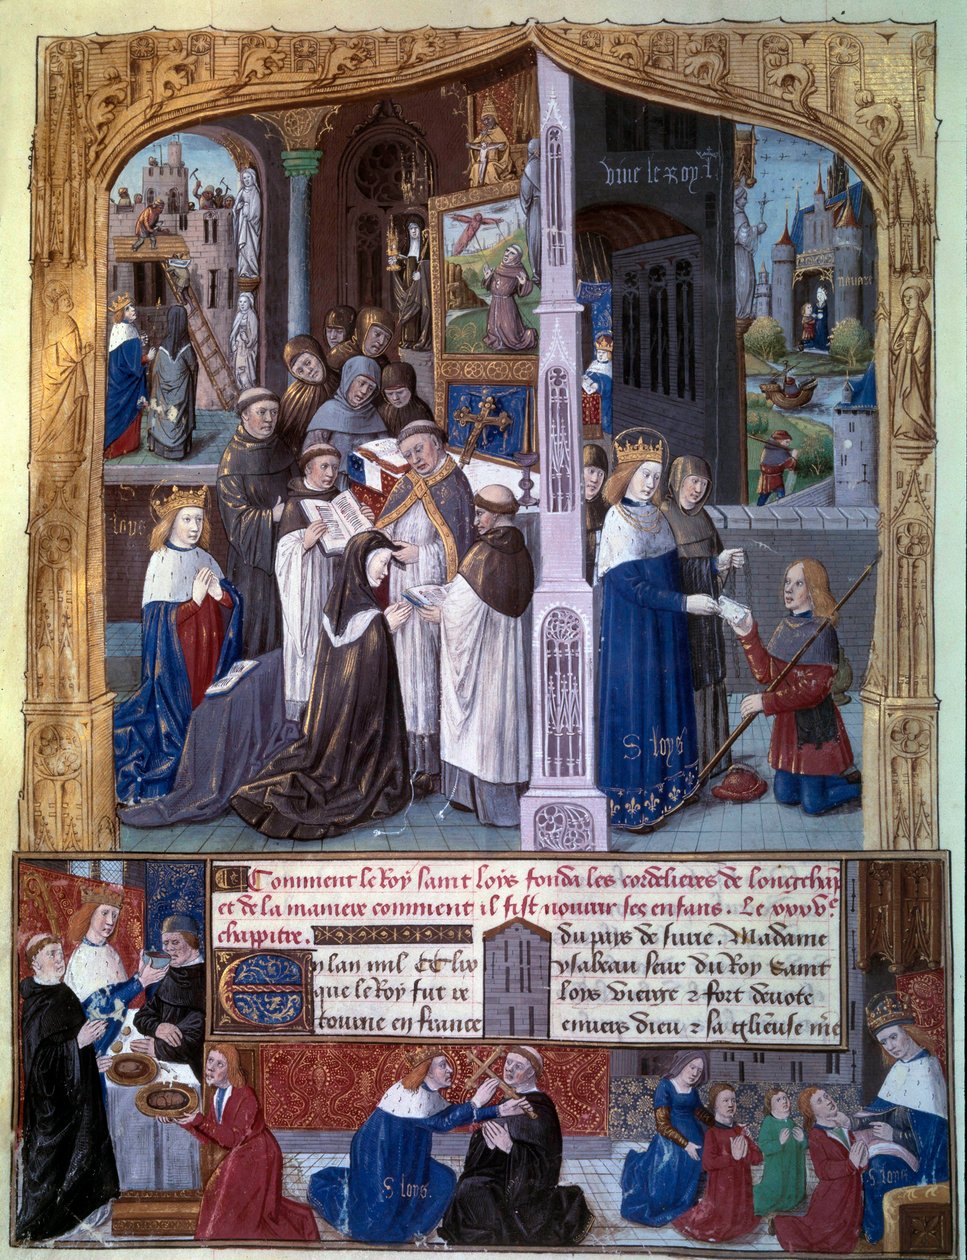 viue le roy
loys
S loys
Comment le Roy saint loys fonda les cordelieres de longchāp
et de la maniere comment il fist nourrir ses enfans. Le
chappitre.
En lan mil
que le Roy fut re
tourne en france
du pays de surie. Madame
ysabeau seur du Roy saint
loys vierge et fort deuote
enuers dieu et sa glieuse me
S loys.
S loys